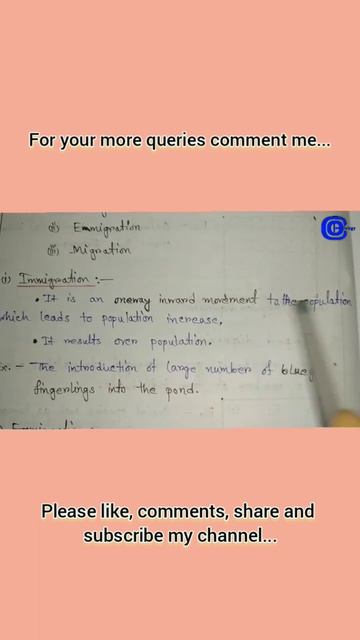 For your more queries comment me...
(ii) Emmigration
(iii) Migration
(i) Immigration :—
• It is an oneway inward movement to the population
which leads to population increase.
• It results over population.
Ex. - The introduction of large number of blue
fingerlings into the pond.
Please like, comments, share and
subscribe my channel...